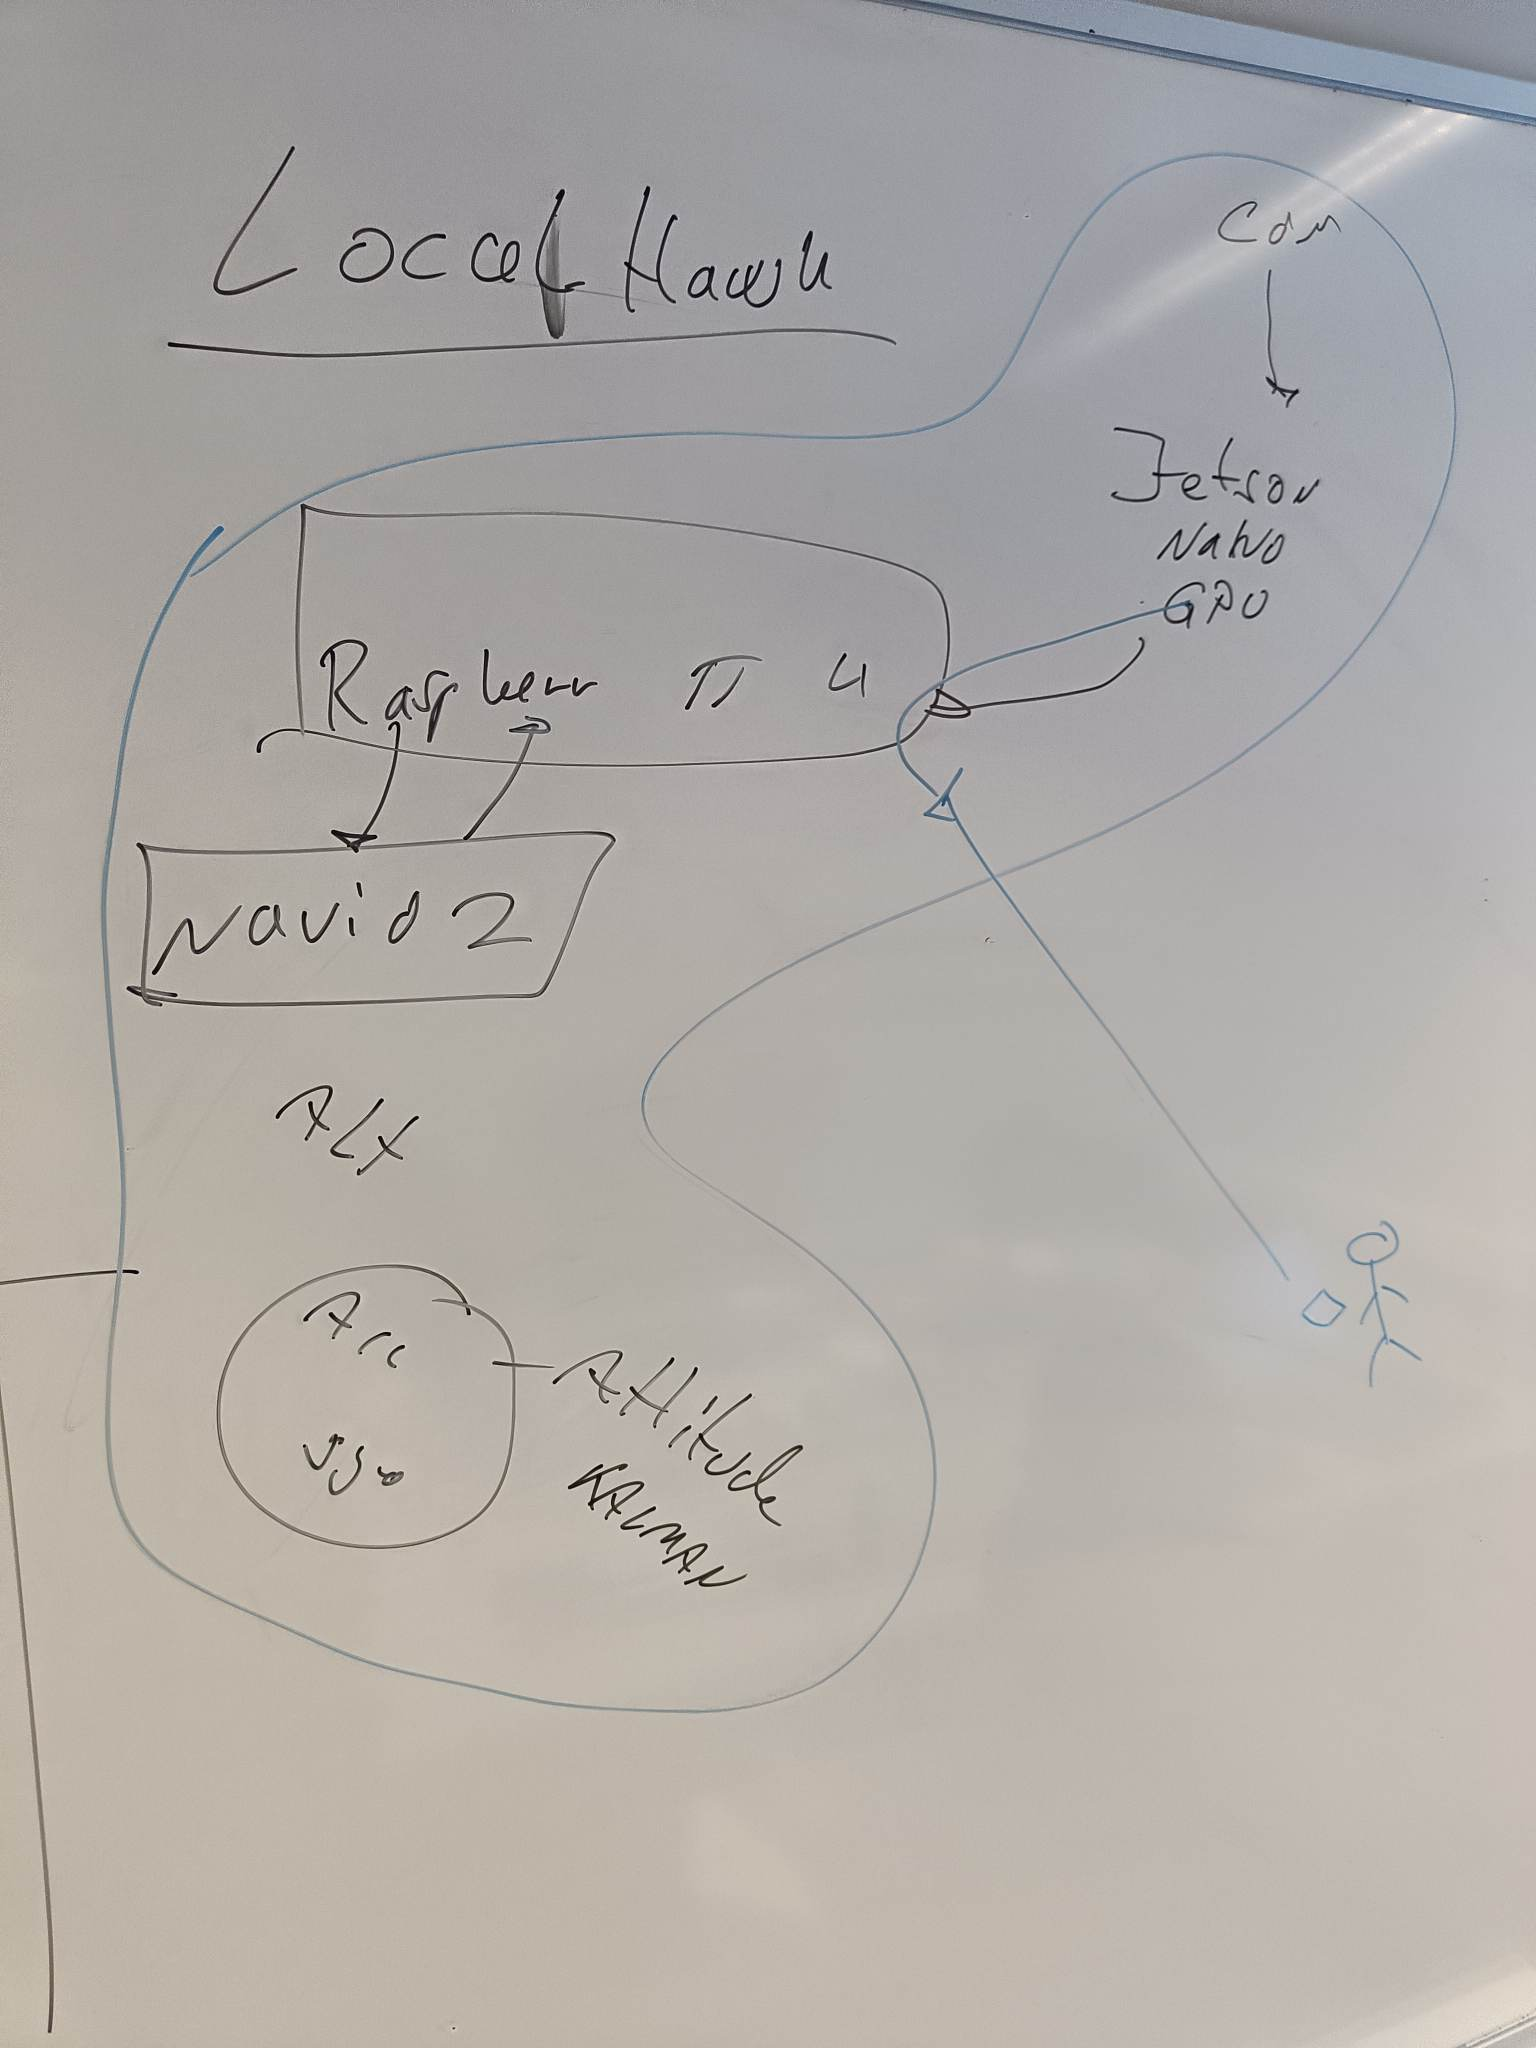 Local Hawk
Cam
Jetson
Nano
GPU
Raspberr π 4
Navio 2
Alt
Acc
Attitude
KALMAN